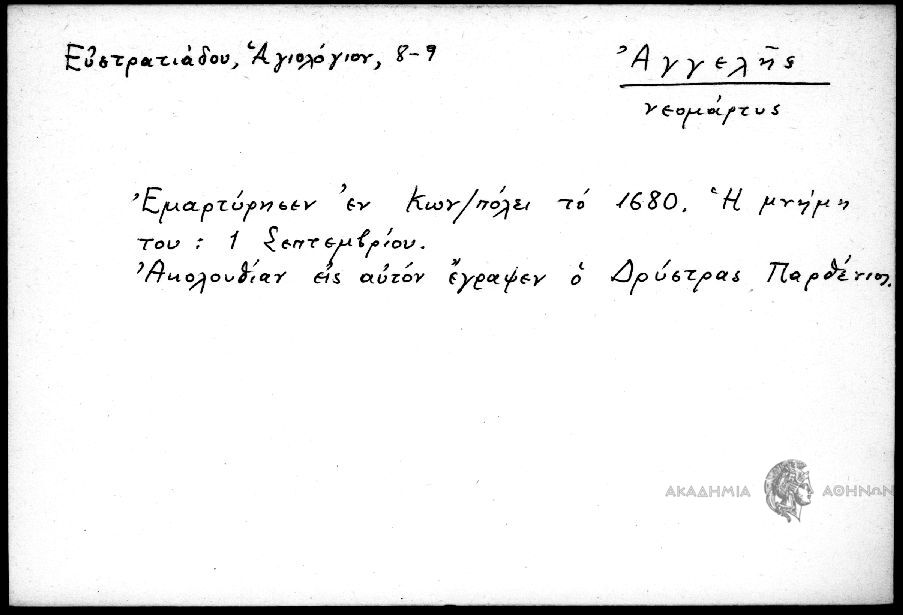 Εὐστρατιάδου, Ἁγιολόγιον, 8-9
Ἀγγελῆς
νεομάρτυς
Ἐμαρτύρησεν ἐν Κων/πόλει τό 1680. Ἡ μνήμη
του : 1 Σεπτεμβρίου.
Ἀκολουθίαν εἰς αὐτόν ἔγραψεν ὁ Δρύστρας Παρθένιος.
ΑΚΑΔΗΜΙΑ ΑΘΗΝΩΝ